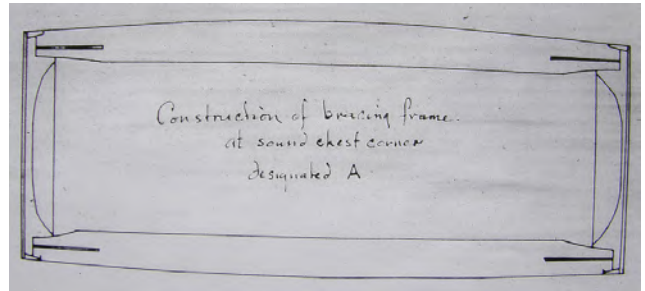 Construction of bracing frame.
at sound chest corner
designated A